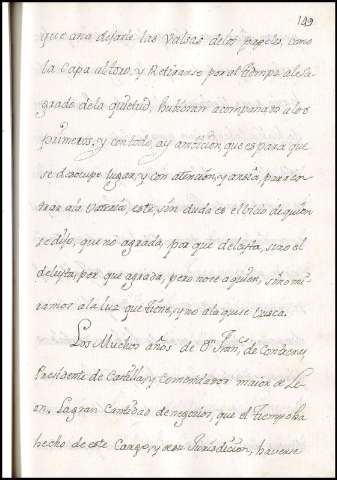 149
que ana dejarle las Valsas delos papeles, como
la Capa al toro, y Retirarse por al tiempo ale sa
grado dela quietud, hubieran acompañado alos
primeros, y con todo, ay ambicion, que es para que
se desocupe lugar, y con atencion, y ansia, para en
trar a la Vateria, este, sin duda es el vicio de quien
se dijo, que no agrada, por que deleyta, sino el
deleyta, por que agrada, pero note a quien, sino mi
ramos a la luz que tiene, y no ala que se busca.
Los Muchos años de Dn Fran.co de Contreras,
Presidente de Castilla, y comendador maior de Le
on. La gran Cantidad de negocios, que el tiempo ha
hecho de este Cargo, y a su Jurisdicion, haverse